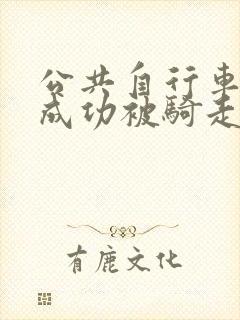 公共自行車
成功被騎走
有鹿文化